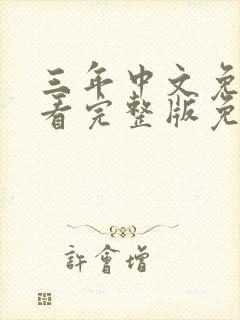 三年中文免
看完整版免
許會增